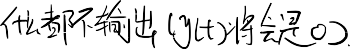 什么都不输出(y(t)将会是0)